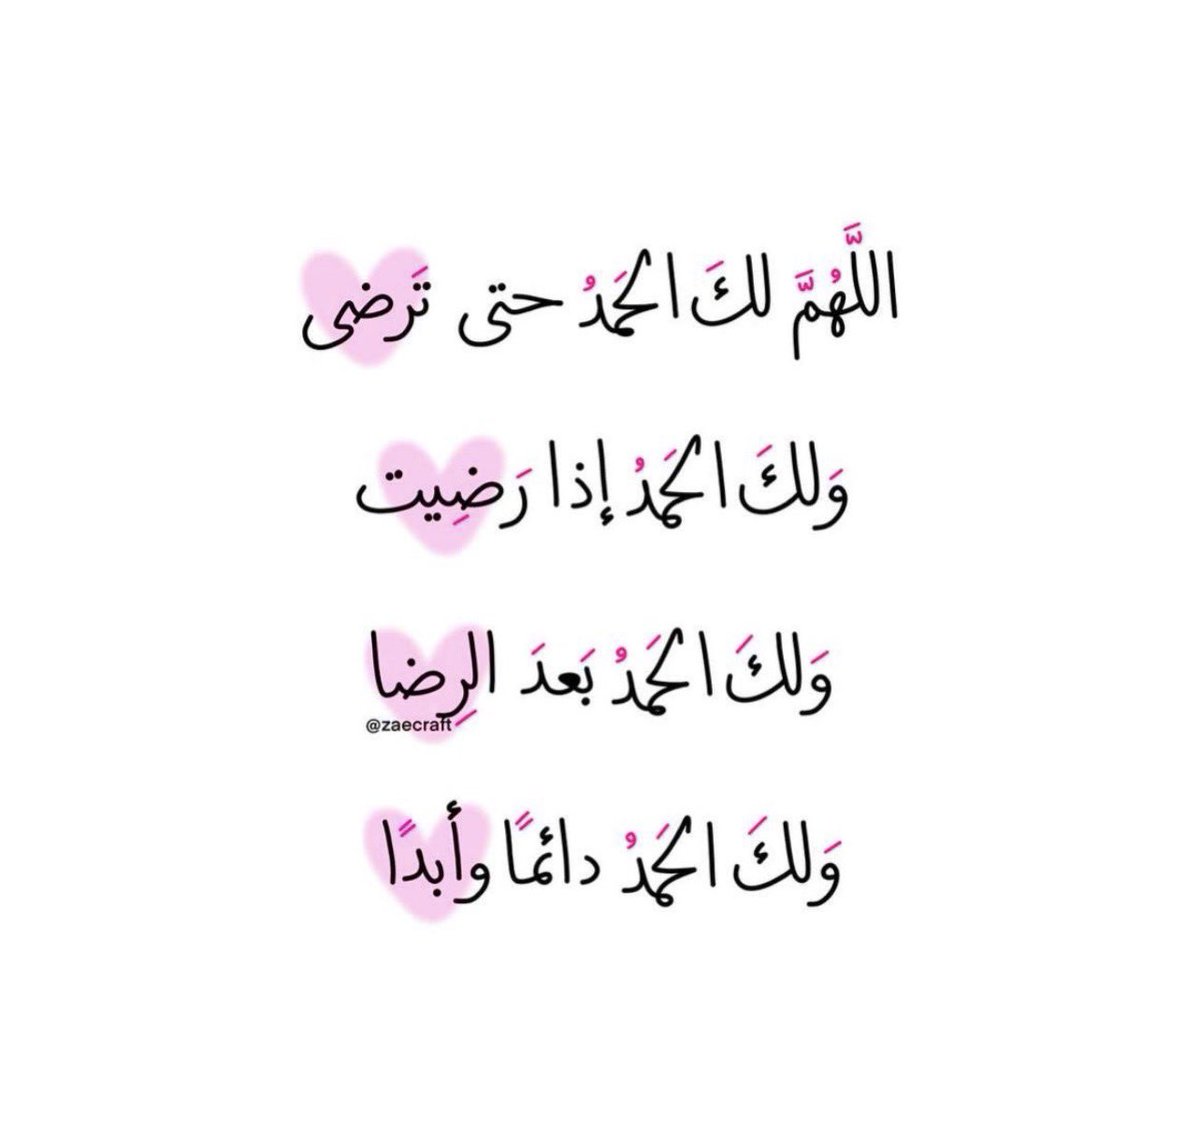 اللَّهُمَّ لكَ الحَمدُ حتى تَرضى
وَلكَ الحَمدُ إذا رَضِيت
وَلكَ الحَمدُ بَعدَ الرِضا
@zaecraft
وَلكَ الحَمدُ دائمًا وأبدًا